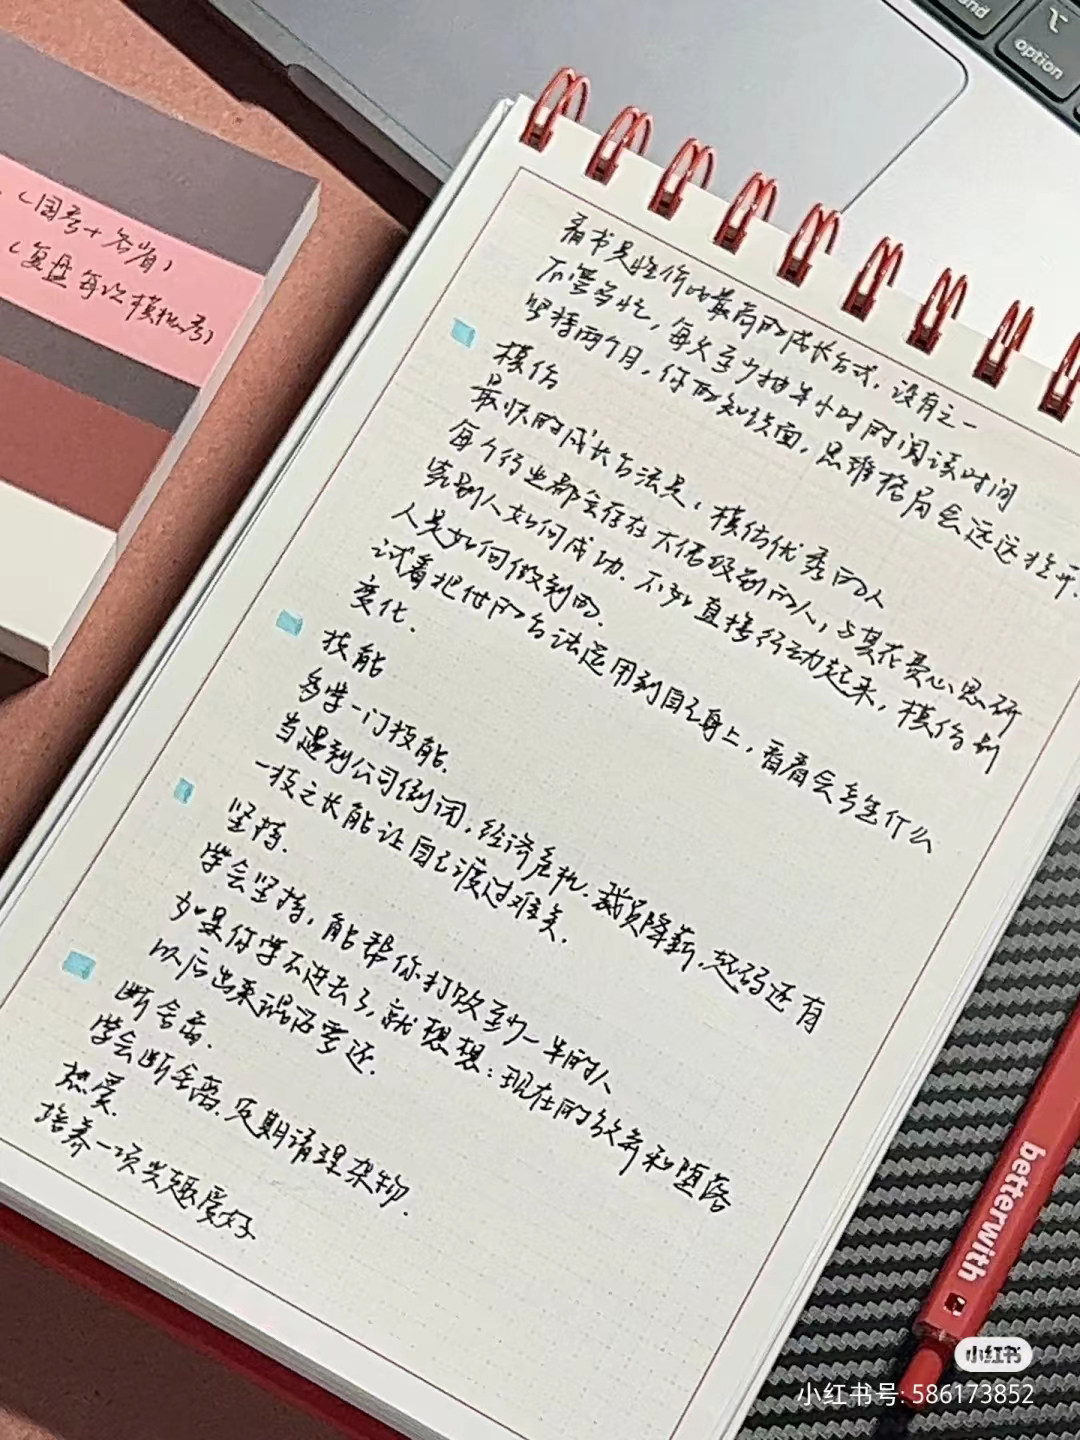 option
(国考+省省)
(复盘每次模拟考)
看书是性价比最高的成长方式，没有之一
不管多忙，每天至少抽半小时的阅读时间
坚持两个月，你的知识面，思维格局会远远拉开.
模仿
最快的成长方法是，模仿优秀的人
每个行业都会存在大佬级别的人，与其花费心思研
究别人如何成功.不如直接行动起来，模仿别
人是如何做到的.
试着把他的方法运用到自己身上，看看会产生什么
变化.
技能
多学一门技能.
当遇到公司倒闭，经济危机.裁员降薪，起码还有
一技之长能让自己渡过难关.
坚持.
学会坚持，能帮你打败至少一半的人
如果你学不进去了，就想想：现在的放弃和堕落
以后出来混迟要还.
断舍离.
学会断舍离.定期清理杂物.
热爱.
培养一项兴趣爱好
betterwith
小红书
小红书号: 586173852